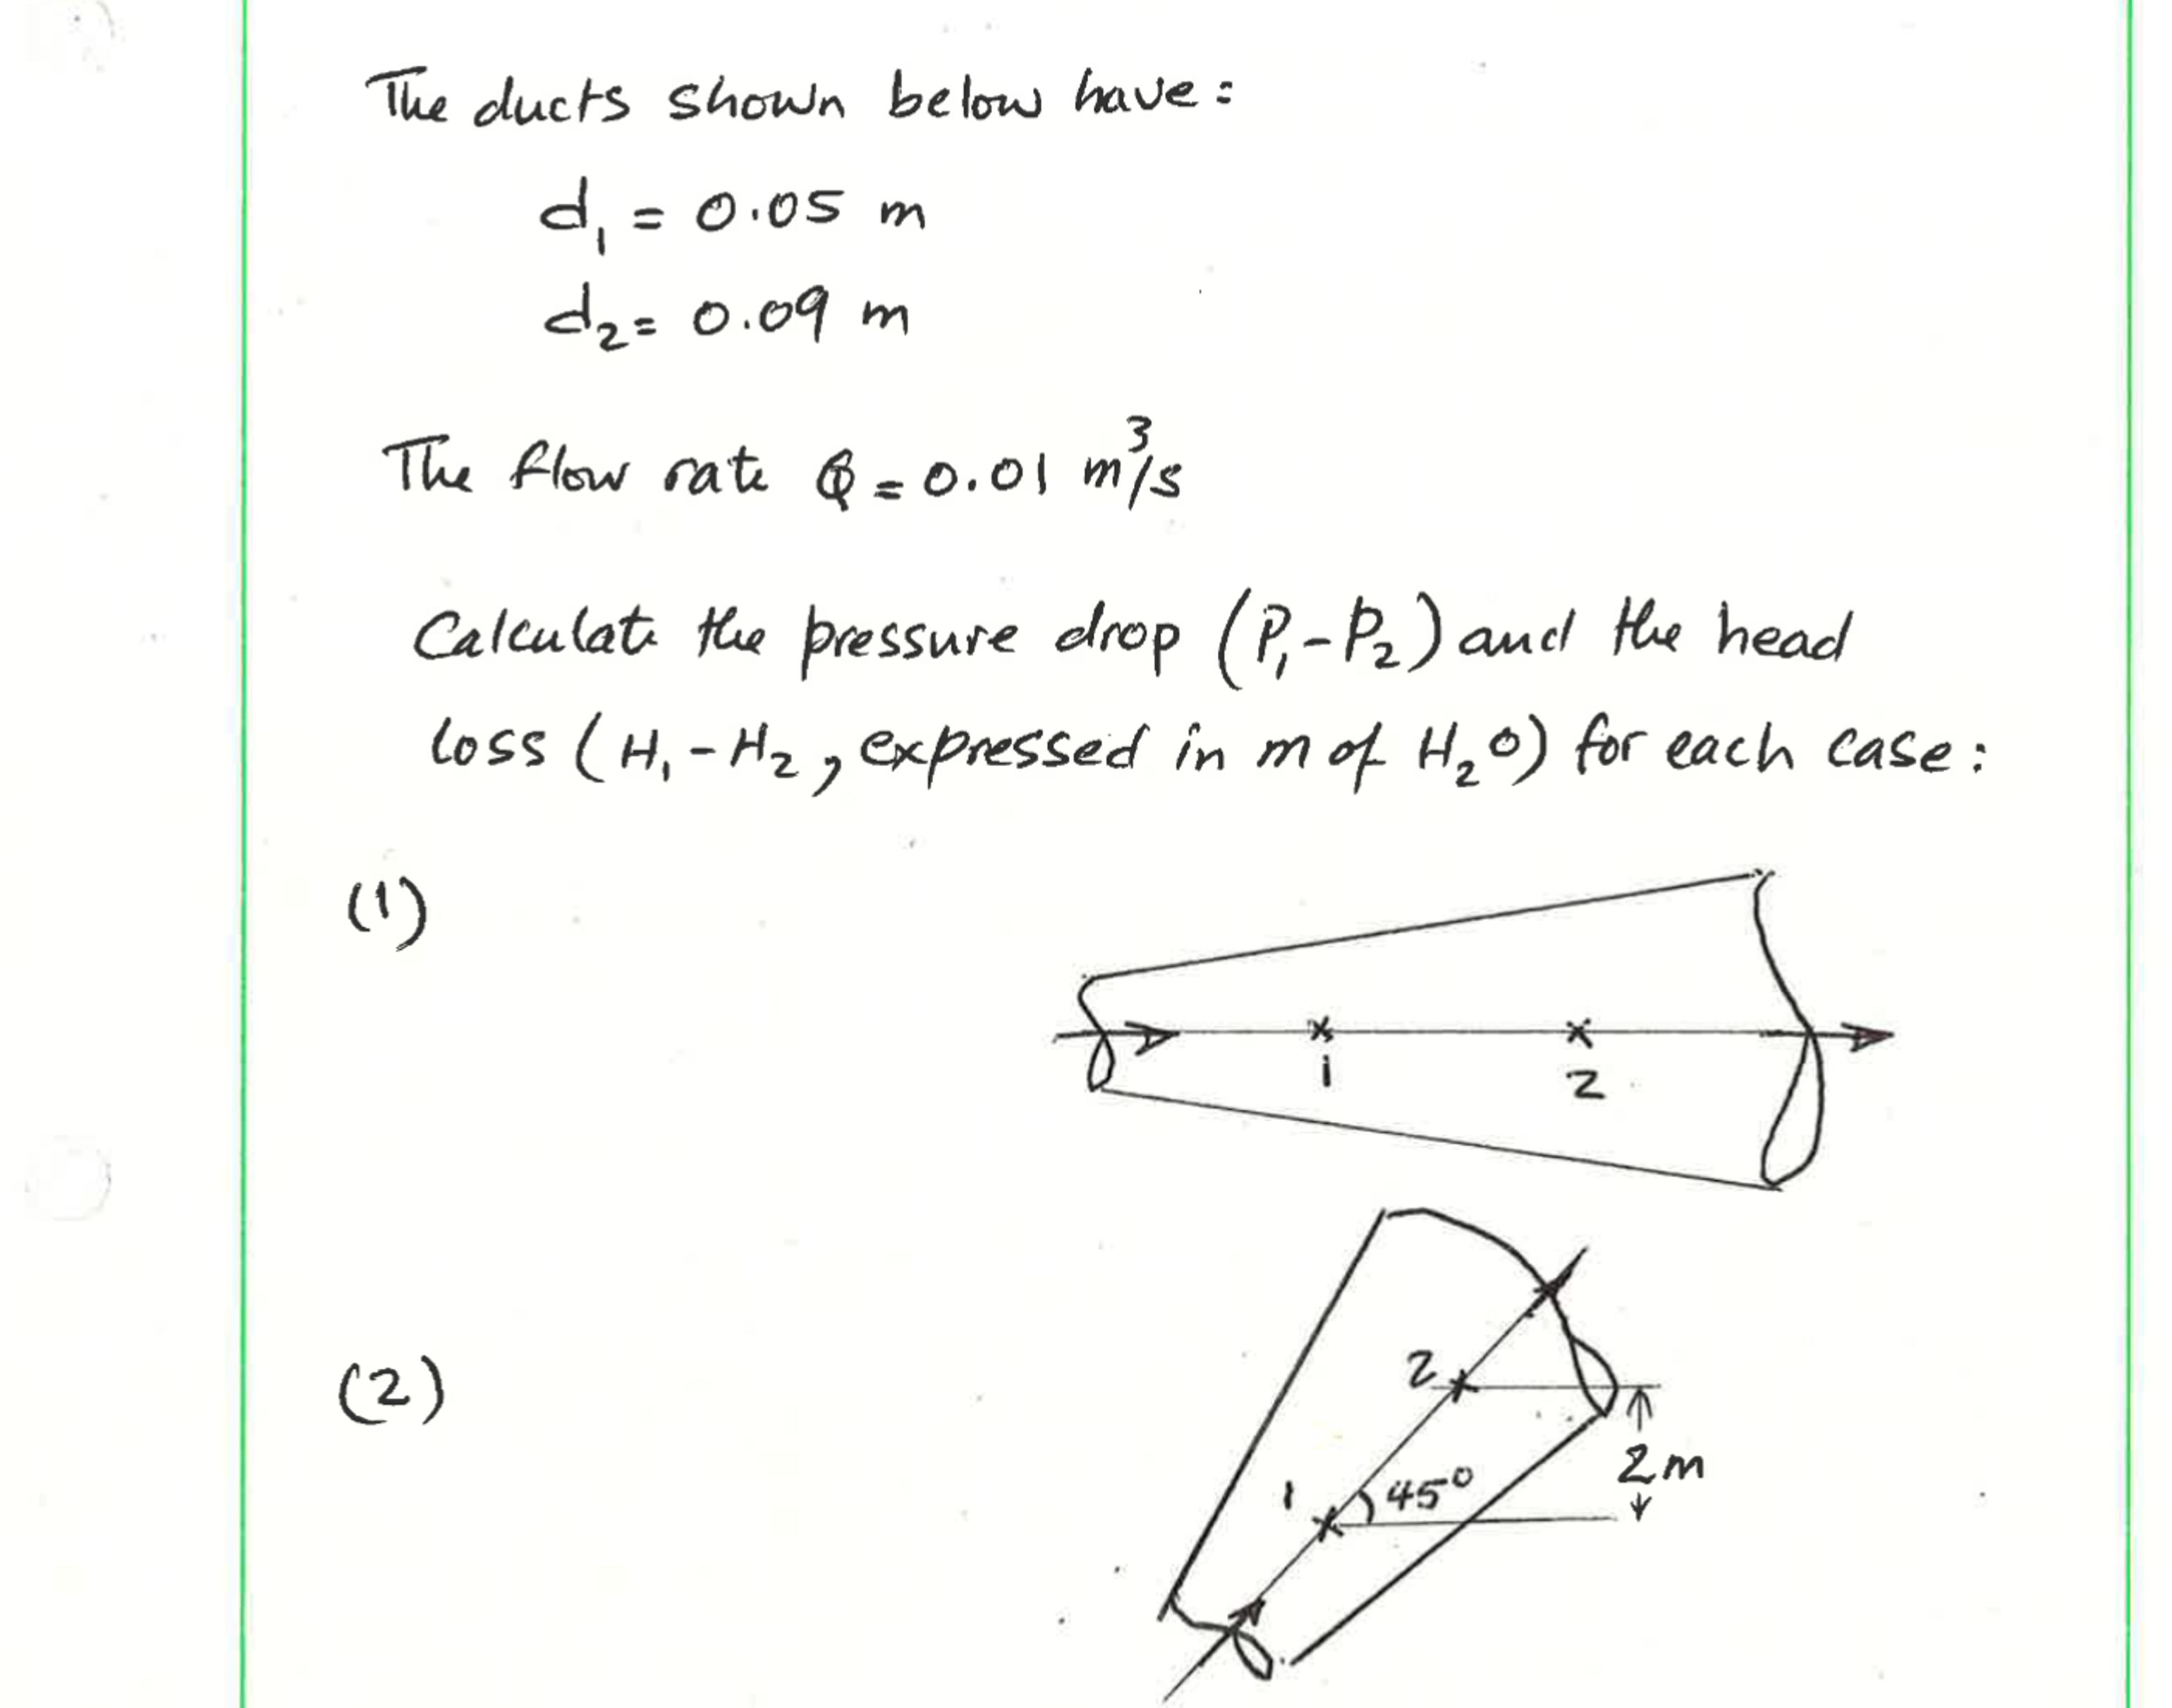 The ducts shown below have:
d₁ = 0.05 m
d₂ = 0.09 m
The flow rate Q = 0.01 m³/s
Calculate the pressure drop (P₁-P₂) and the head
loss (H₁-H₂, expressed in m of H₂O) for each case:
(1)
1
2
(2)
2
2m
1
45°